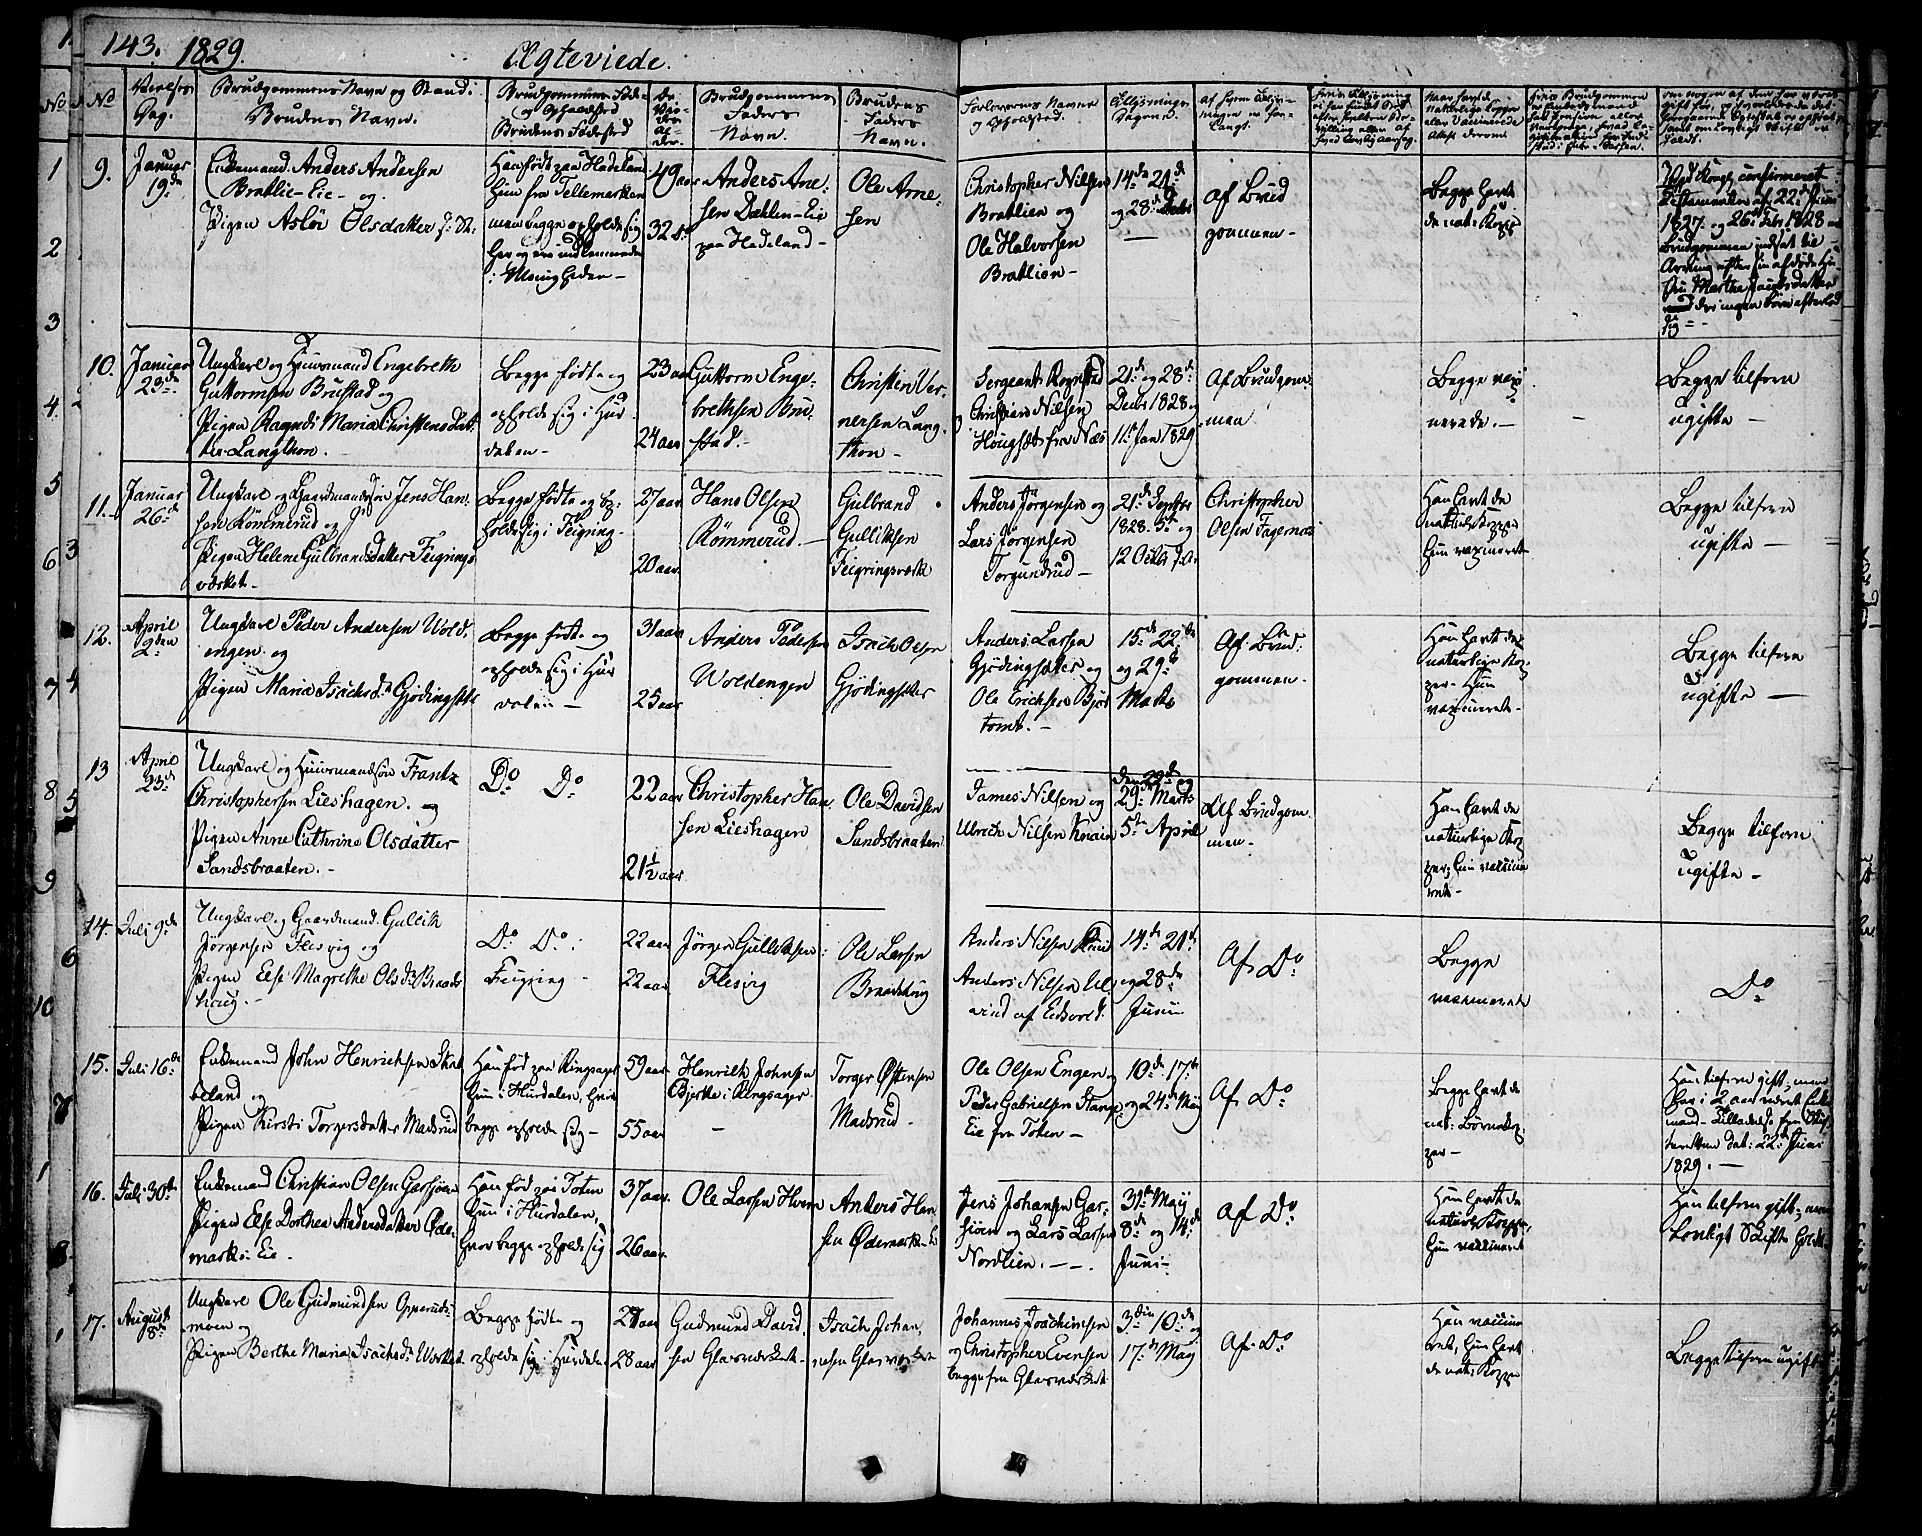 143. 1829.
Ægteviede.
No
Vielses Dag.
Brudgommens Navn og Stand.
Brudens Navn.
Brudgommens Føde- og Opholdsted
Brudens Fødested
Brudgommens Faders Navn.
Brudens Faders Navn.
Forlovernes Navne og Opholdsted.
Tillysnings Dagene.
9.
Januar 19de
Enkemand Anders Andersen
Bratlie-Eie og
Pigen Aslör Olsdatter
Han født paa Hadeland
Hun fra Tellemarken
men begge opholde sig
her og ere indlemmede
i Menigheden
49 aar
32
Anders Arne-
sen Dæhlen-Eie
paa Hadeland
Ole Arne-
sen
Christopher Nilsen
Bratlien og
Ole Halvorsen
Bratlien
14de 21de
og 28de Decbr
Af Brud
gommen
Begge havt
de nat: Kopper
confirmeret
Testamenter af 22de Juni
1827 og 26de Febr. 1828
10.
Januar 23de
Ungkarl og Huusmand Engebreth
Guttormsen Brustad og
Pigen Ragndi Maria Christensdat-
ter Langthon.
Begge fødte og
opholde sig i Hur-
dalen
23 aar
24 aar
Guttorm Enge-
brethsen Bru-
stad.
Christen Ver-
nersen Lang-
thon
Sergeant Rognstad
Christian Nilsen
Hougsæt fra Næs
21de og 28de
Decbr 1828 og
11te Jan 1829.
Af Brudgom-
men
Begge vaxi-
nerede.
Begge tilforn
ugifte
11.
Januar 26de
Ungkarl og Gaardmandssøn Jens Han-
sen Römmerud og
Pigen Helene Gulbrandsdatter Feigrings
værket
Begge fødte og op-
holde sig i Feigring
27 aar
20 aar
Hans Olsen
Römmerud.
Gulbrand
Gulliksen
Feigringsværk
Anders Jörgensen og
Lars Jörgensen
Torgundrud
21de Septbr
1828. 5te og
12 Octbr
Christopher
Olsen Fagernes
Han havt de
naturl. Kopper
Hun vaxineret
Begge tilforn
ugifte
12.
April 2den
Ungkarl Peder Andersen Wold-
engen og
Pigen Maria Isachsd: Gjödingsæter
Begge fødte og
opholde sig i Hur
dalen
31 aar
25 aar
Anders Pedersen
Woldengen
Isach Olsen
Gjödingsæter
Anders Larsen
Gjödingsæter og
Ole Erichsen Björ-
tomt.
15de 22de
og 29de
Marts
Af Brud-
gommen.
Han havt de
naturlige Kop-
per. Hun
vaxineret
Begge tilforn
ugifte
13
April 23de
Ungkarl og Huusmandssøn Frantz
Christophersen Lieshagen og
Pigen Anne Cathrine Olsdatter
Sandsbraaten.
Do Do
22 aar
21½ aar
Christopher Han-
sen Lieshagen
Ole Davidsen
Sandsbraaten
James Nilsen og
Ulrich Nilsen Knain
den 22de og
29de Marts
5te April
Af Brudgom-
men
Han havt de
naturlige Kop-
per, hun vaccine
ret
Begge tilforn
ugifte
14.
Juli 9de
Ungkarl og Gaardmand Gullik
Jörgensen Flesvig og
Pigen Else Magrethe Olsd: Braads
houg.
Do Do
Feigring
22 aar
22 aar
Jörgen Gulliksen
Flesvig
Ole Larsen
Braadshoug
Anders Nilsen
Anders Nilsen Ul-
vind af Eidsvold.
14de 21de
og 28de
Juni
Af Do
Begge
vaccinerede
Do
15.
Juli 16de
Enkemand John Henrichsen Skab
beland og
Pigen Kirsti Torgersdatter Madsrud
Han fød paa Ringsager
Hun i Hurdalen, hvor
begge opholde sig
59 aar
55 aar
Henrik Johnsen
Bjerke i Ringsager
Torger Østensen
Madsrud.
Ole Olsen Engen og
Peder Gabrielsen Stange
Eie fra Toten
10de 17de
og 24de May
Af Do
Begge havt de
nat: Børnekop-
per
Han tilforn gift, men
har i 2 aar været Enke
mand
dat: 22de Juni
1829.
16.
Juli 30te
Enkemand Christian Olsen Garsjöen
Pigen Else Dorthea Andersdatter Øde-
marks-Eie.
Han fød paa Toten
Hun i Hurdalen,
hvor begge opholde sig
37 aar
26 aar
Ole Larsen Hvem
Anders Han-
sen Ødemark-Eie
Jens Johansen Gar-
siöen og Lars Larsen
Nordlien.
31te May
8de og 14de
Juni
Af Do
Han havt de
naturl. Kopper,
Hun vaccineret
Han tilforn gift, men
lovligt Skifte holdt
17.
August 8de
Ungkarl Ole Gudmundsen Opperuds-
moen og
Pigen Berthe Maria Isachsd: Værket
Begge fødte og
opholde sig i Hurdalen
27 aar
28 aar
Gudmund David-
sen Glasværket
Isach Johan-
nesen Glasværket
Johannes Joachimsen
og Christopher Evensen
begge fra Glasværket
3die 10de og
17de May
Af Do
Han vaccine
ret, Hun havt
de nat: Kopper
Begge tilforn ugift